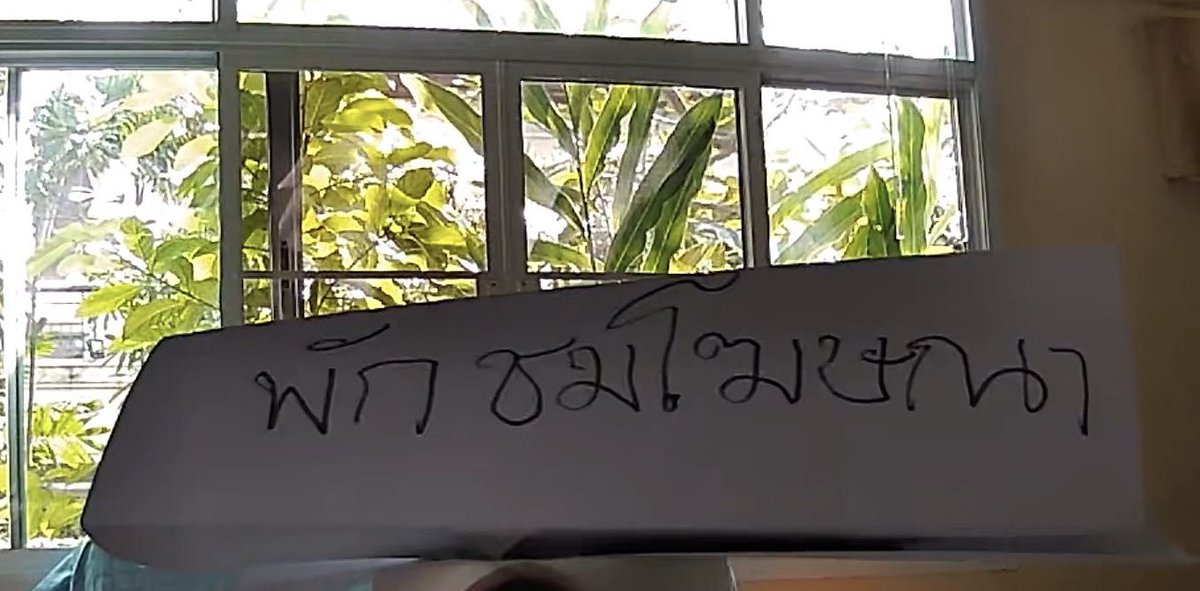 พัก ชมโฆษณา